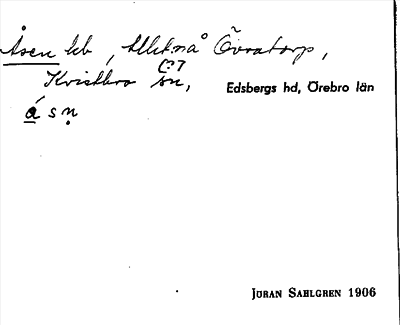 Åsen hb, Ullersnå Övratorp,
Kvistbro sn,
Edsbergs hd, Örebro län
á s ṇ
JÖRAN SAHLGREN 1906